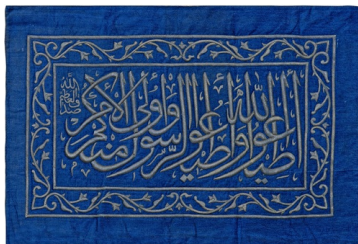 أطيعوا الله وأطيعوا الرسول وأولي الأمر منكم
صدق الله العظيم